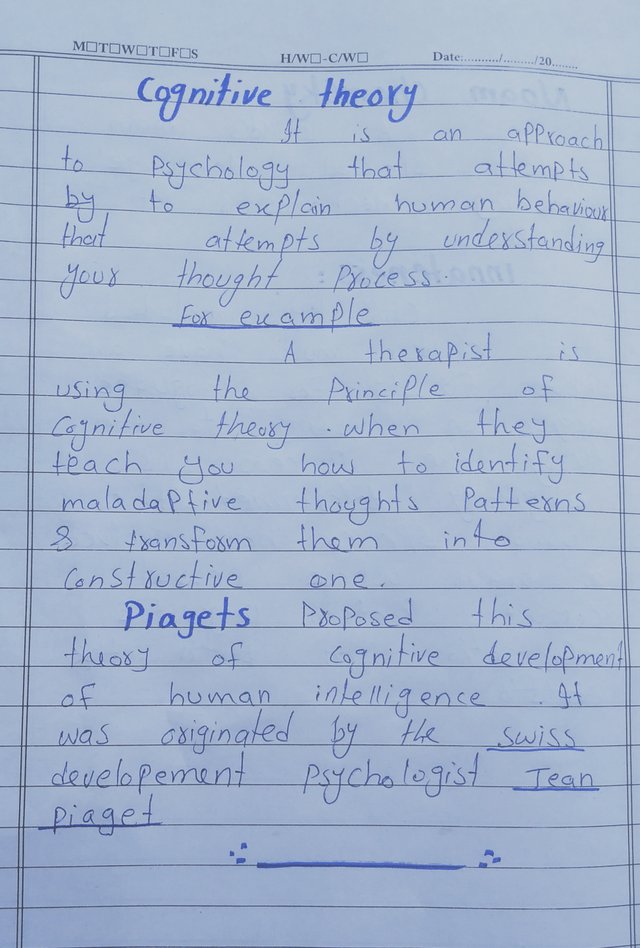 M□T□W□T□F□S H/W□-C/W□ Date:........../........./20........
Cognitive theory
It is an approach
to psychology that attempts
by to explain human behaviour
that attempts by understanding
your thought process.
For example
A therapist is
using the principle of
Cognitive theory . when they
teach you how to identify
maladaptive thoughts Patterns
& transform them into
constructive one.
Piagets proposed this
theory of cognitive development
of human intelligence . It
was originated by the swiss
developement psychologist Jean
piaget